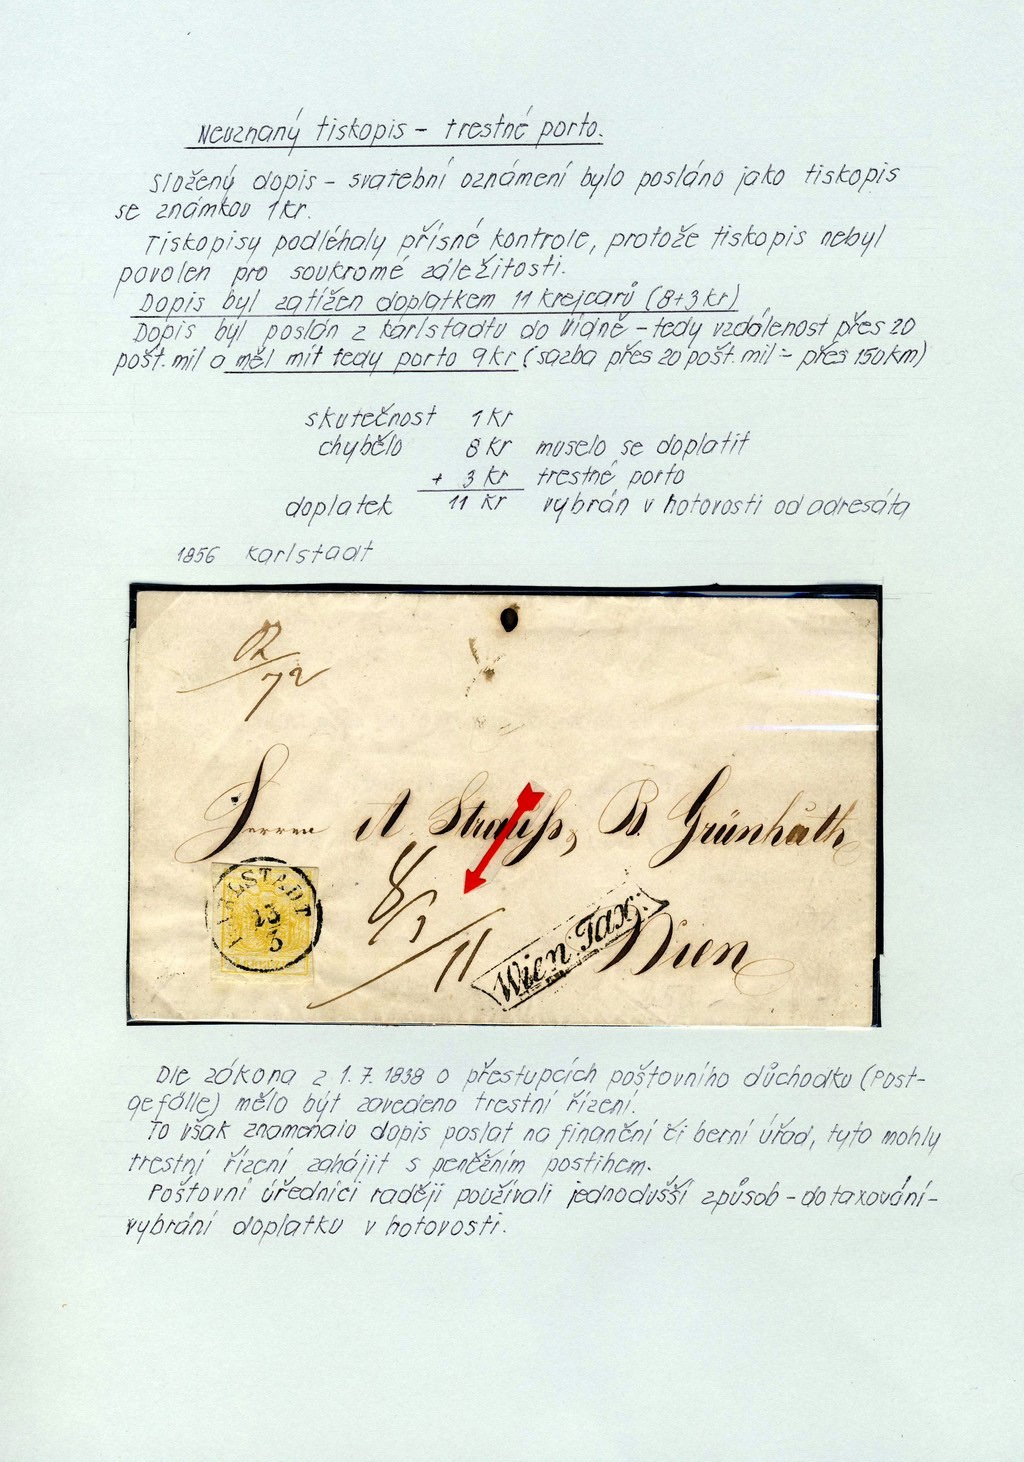 Neuznaný tiskopis – trestné porto.
Složený dopis – svatební oznámení bylo posláno jako tiskopis
se známkou 1kr.
Tiskopisy podléhaly přísné kontrole, protože tiskopis nebyl
povolen pro soukromé záležitosti.
Dopis byl zatížen doplatkem 11 krejcarů (8+3kr)
Dopis byl poslán z Karlstadtu do Vídně – tedy vzdálenost přes 20
pošt. mil a měl mít tedy porto 9kr (sazba přes 20 pošt. mil = přes 150km)
skutečnost 1 kr
chybělo 8 kr muselo se doplatit
+ 3 kr trestné porto
doplatek 11 kr vybrán v hotovosti od adresáta
1856 Karlstadt
72
Herren A Strauss, B. Grünhuth
8/3
KARLSTADT
13
3
11
Wien Tax.
Wien
Dle zákona z 1.7.1838 o přestupcích poštovního důchodku (Post-
gefälle) mělo být zavedeno trestní řízení.
To však znamenalo dopis poslat na finanční či berní úřad, tyto mohly
trestní řízení zahájit s peněžním postihem.
Poštovní úředníci raději používali jednodušší způsob – dotaxování –
vybrání doplatku v hotovosti.